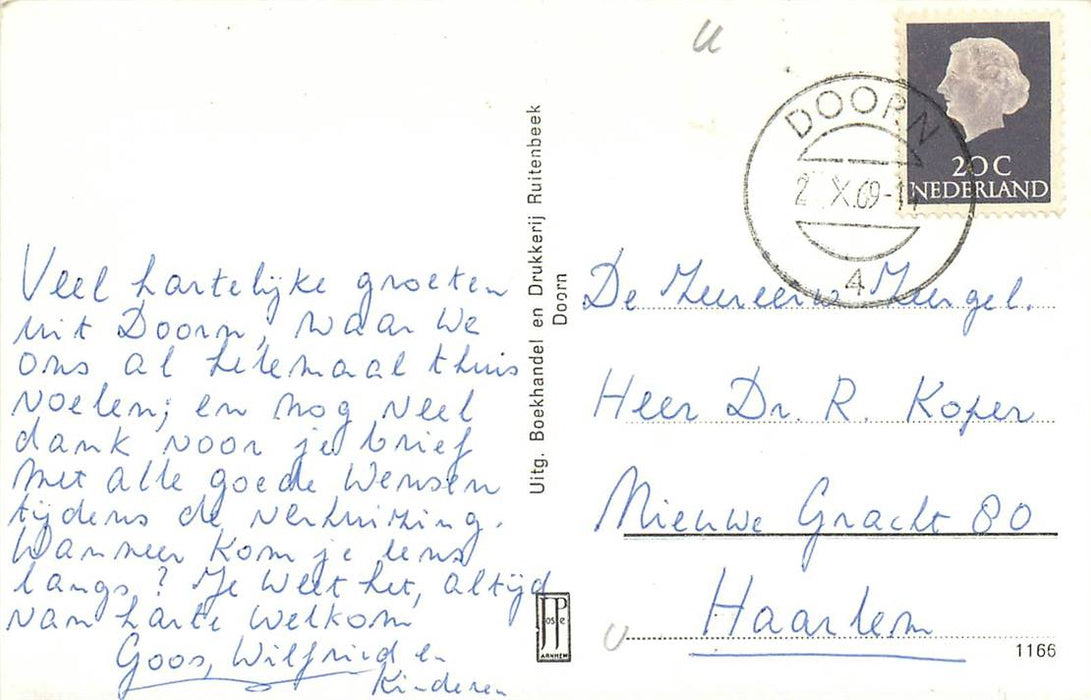 Veel hartelijke groeten
uit Doorn, waar we
ons al helemaal thuis
voelen; en nog veel
dank voor je brief
met alle goede wensen
tijdens de verhuizing.
Wanneer kom je eens
langs? Je weet het, altijd
van harte welkom
Goos, Wilfried en
Kinderen
Uitg. Boekhandel en Drukkerij Ruitenbeek
Doorn
JosPe
ARNHEM
DOORN
X.69-
4
20C
NEDERLAND
De
Heer Dr. R. Koper
Nieuwe Gracht 80
Haarlem
1166